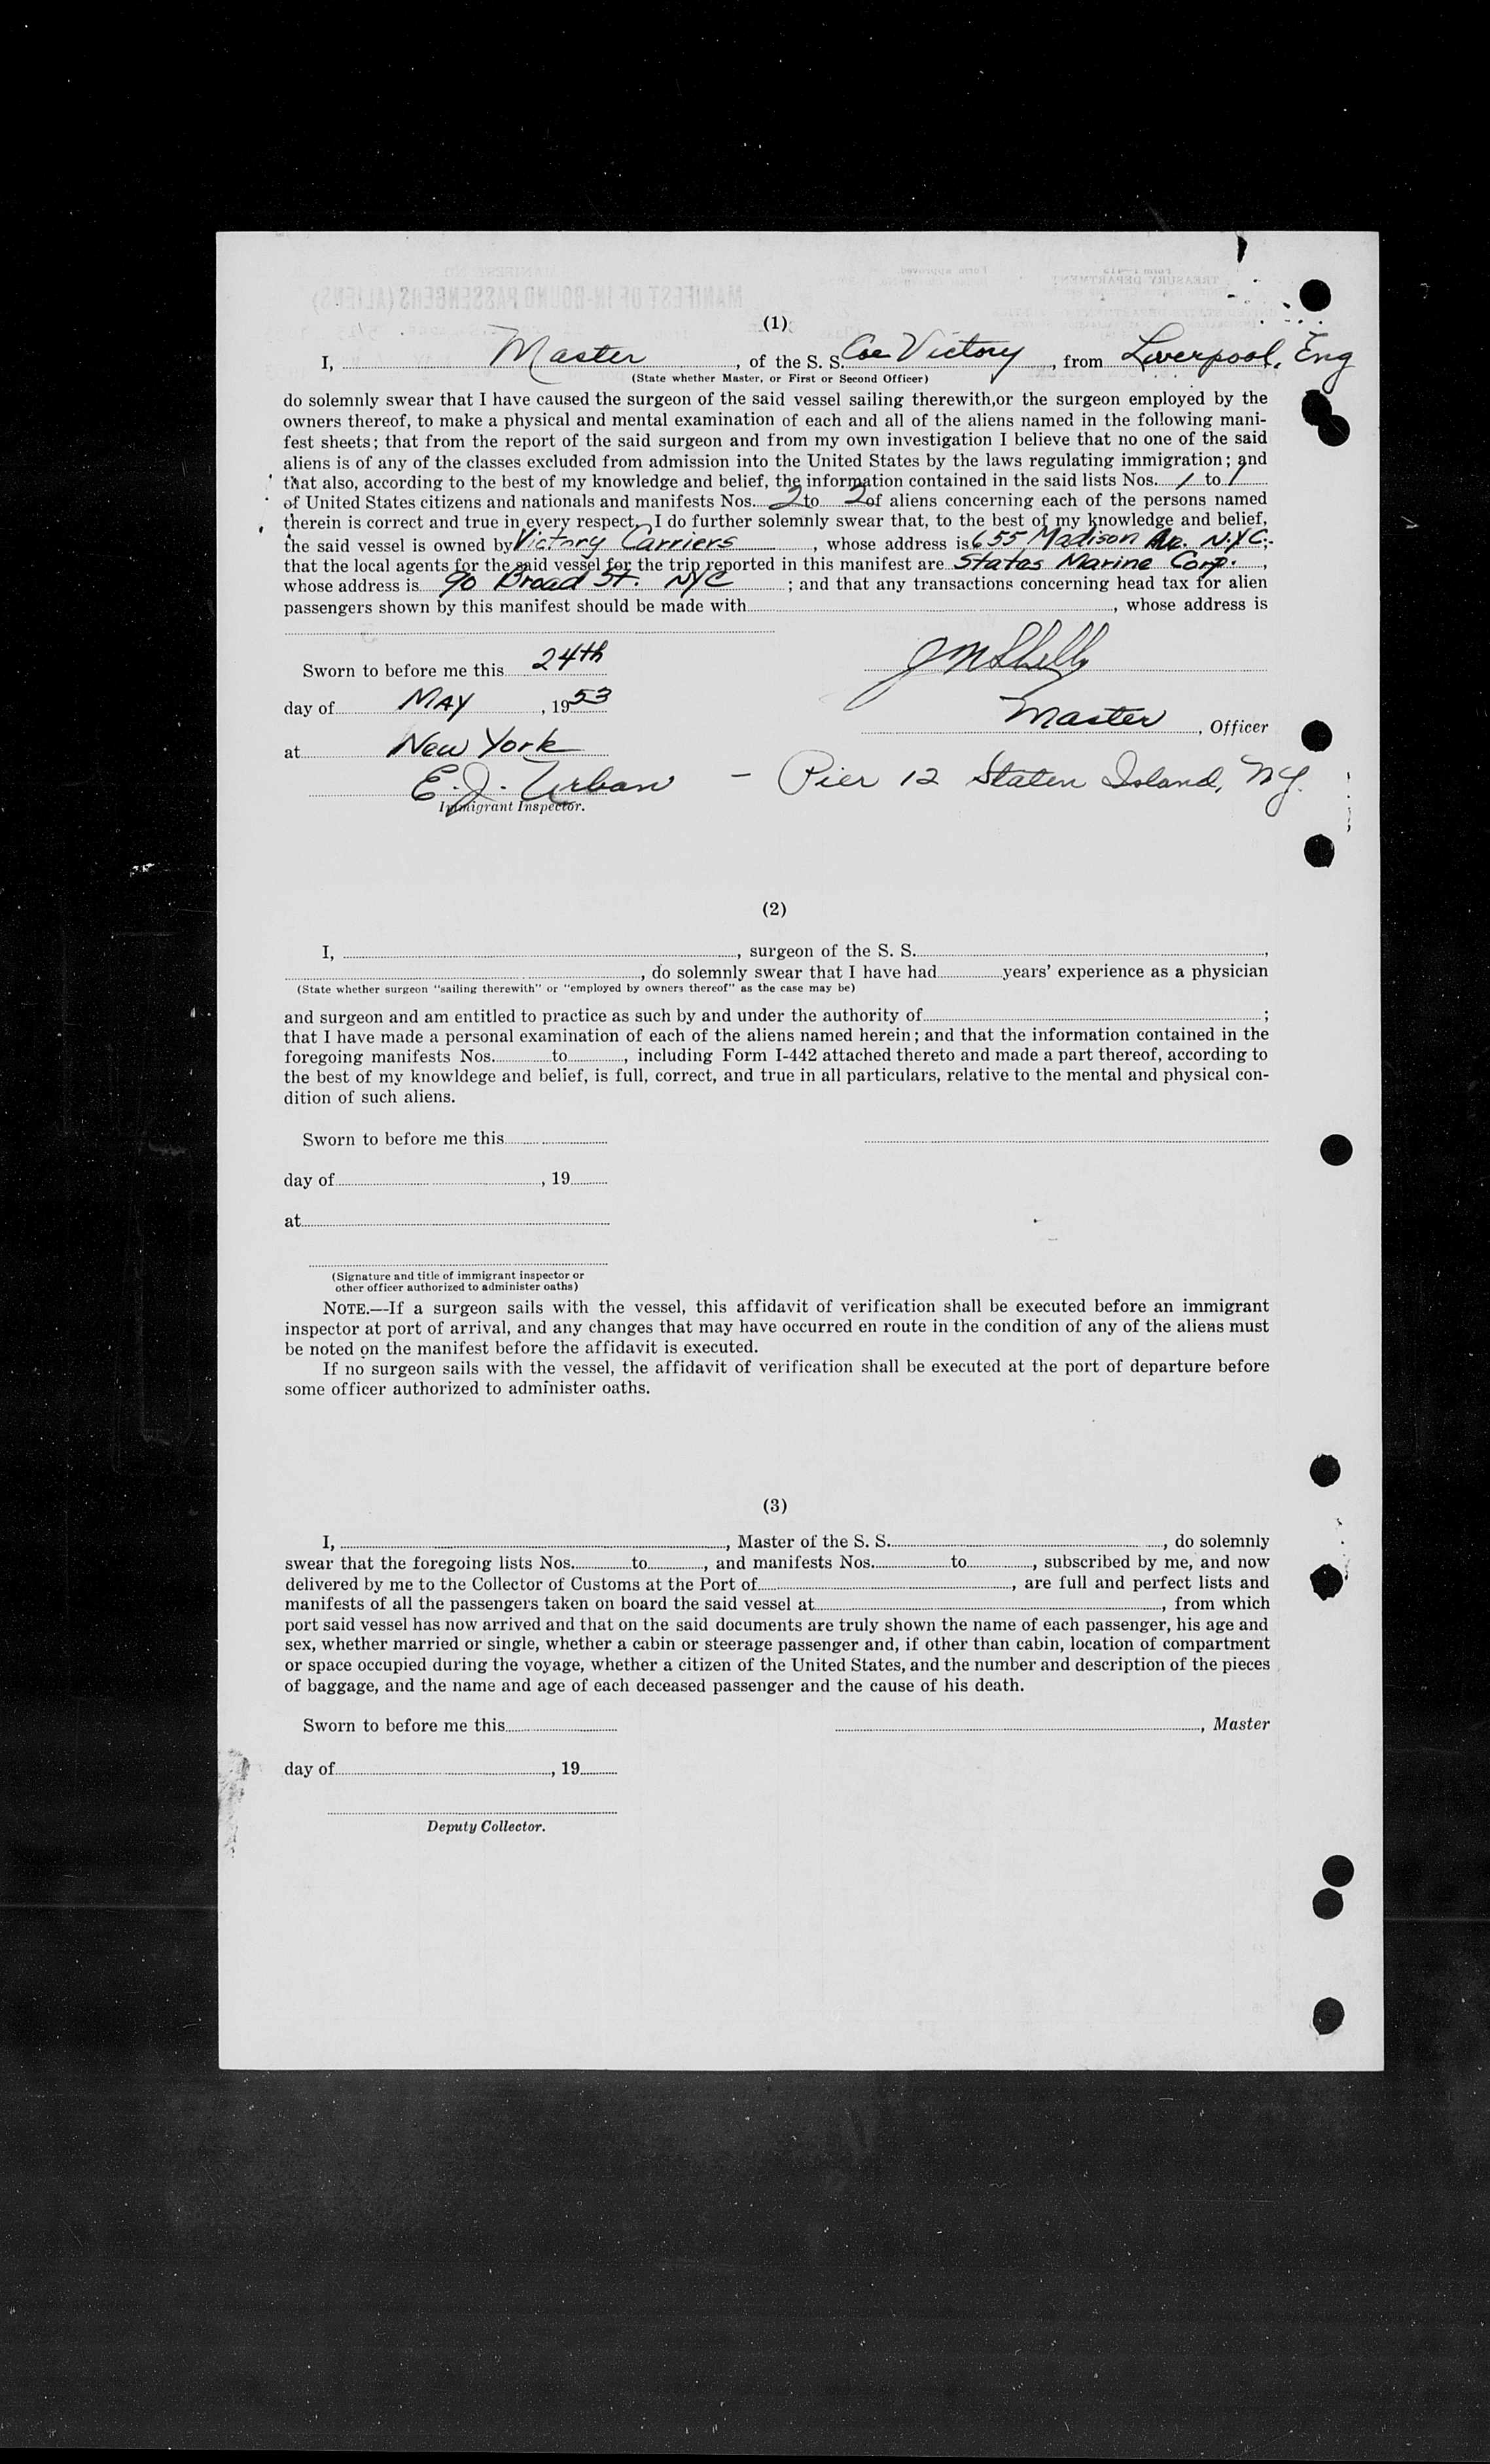 (1)
I, Master, of the S. S. Coe Victory, from Liverpool, Eng
(State whether Master, or First or Second Officer)
do solemnly swear that I have caused the surgeon of the said vessel sailing therewith, or the surgeon employed by the
owners thereof, to make a physical and mental examination of each and all of the aliens named in the following mani-
fest sheets; that from the report of the said surgeon and from my own investigation I believe that no one of the said
aliens is of any of the classes excluded from admission into the United States by the laws regulating immigration; and
that also, according to the best of my knowledge and belief, the information contained in the said lists Nos. 1 to 1
of United States citizens and nationals and manifests Nos. 2 to 2 of aliens concerning each of the persons named
therein is correct and true in every respect. I do further solemnly swear that, to the best of my knowledge and belief,
the said vessel is owned by Victory Carriers, whose address is 655 Madison Av. N.Y.C.;
that the local agents for the said vessel for the trip reported in this manifest are States Marine Corp.,
whose address is 90 Broad St. NYC; and that any transactions concerning head tax for alien
passengers shown by this manifest should be made with, whose address is
Sworn to before me this 24th
JM Shelly
day of MAY, 1953
Master, Officer
at New York
E. J. Urban - Pier 12 Staten Island, NY.
Immigrant Inspector.
(2)
I, , surgeon of the S. S. ,
, do solemnly swear that I have had years' experience as a physician
(State whether surgeon "sailing therewith" or "employed by owners thereof" as the case may be)
and surgeon and am entitled to practice as such by and under the authority of ;
that I have made a personal examination of each of the aliens named herein; and that the information contained in the
foregoing manifests Nos. to , including Form I-442 attached thereto and made a part thereof, according to
the best of my knowldege and belief, is full, correct, and true in all particulars, relative to the mental and physical con-
dition of such aliens.
Sworn to before me this
day of , 19
at
(Signature and title of immigrant inspector or
other officer authorized to administer oaths)
NOTE.—If a surgeon sails with the vessel, this affidavit of verification shall be executed before an immigrant
inspector at port of arrival, and any changes that may have occurred en route in the condition of any of the aliens must
be noted on the manifest before the affidavit is executed.
If no surgeon sails with the vessel, the affidavit of verification shall be executed at the port of departure before
some officer authorized to administer oaths.
(3)
I, , Master of the S. S. , do solemnly
swear that the foregoing lists Nos. to , and manifests Nos. to , subscribed by me, and now
delivered by me to the Collector of Customs at the Port of , are full and perfect lists and
manifests of all the passengers taken on board the said vessel at , from which
port said vessel has now arrived and that on the said documents are truly shown the name of each passenger, his age and
sex, whether married or single, whether a cabin or steerage passenger and, if other than cabin, location of compartment
or space occupied during the voyage, whether a citizen of the United States, and the number and description of the pieces
of baggage, and the name and age of each deceased passenger and the cause of his death.
Sworn to before me this
, Master
day of , 19
Deputy Collector.